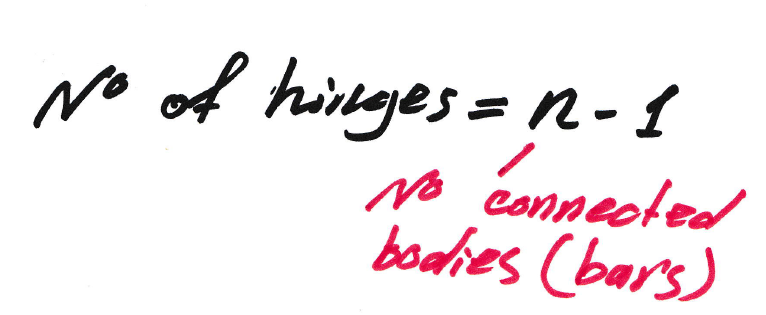 No of hinges = n - 1
No connected
bodies (bars)